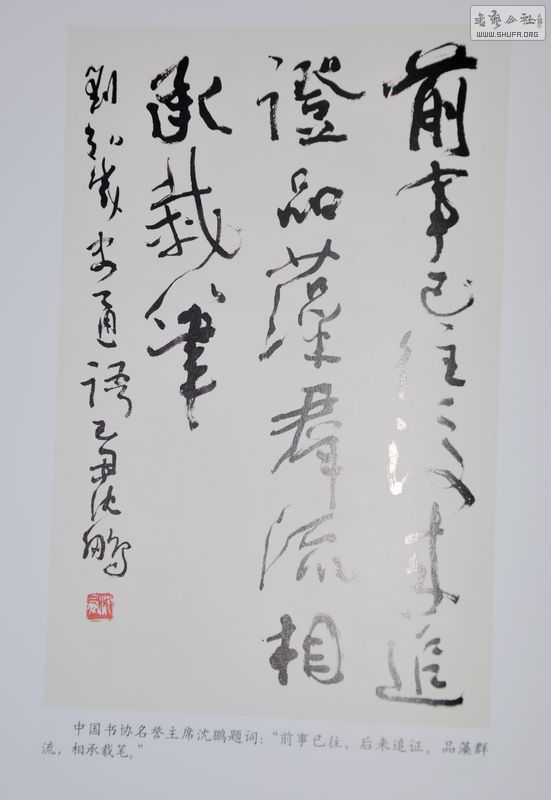 書藝公社
WWW.SHUFA.ORG
前事已往後来追
證品藻群流相
承載筆
劉知幾史通語 沈鵬
中国书协名誉主席沈鹏题词：“前事已往，后来追证。品藻群
流，相承载笔。”